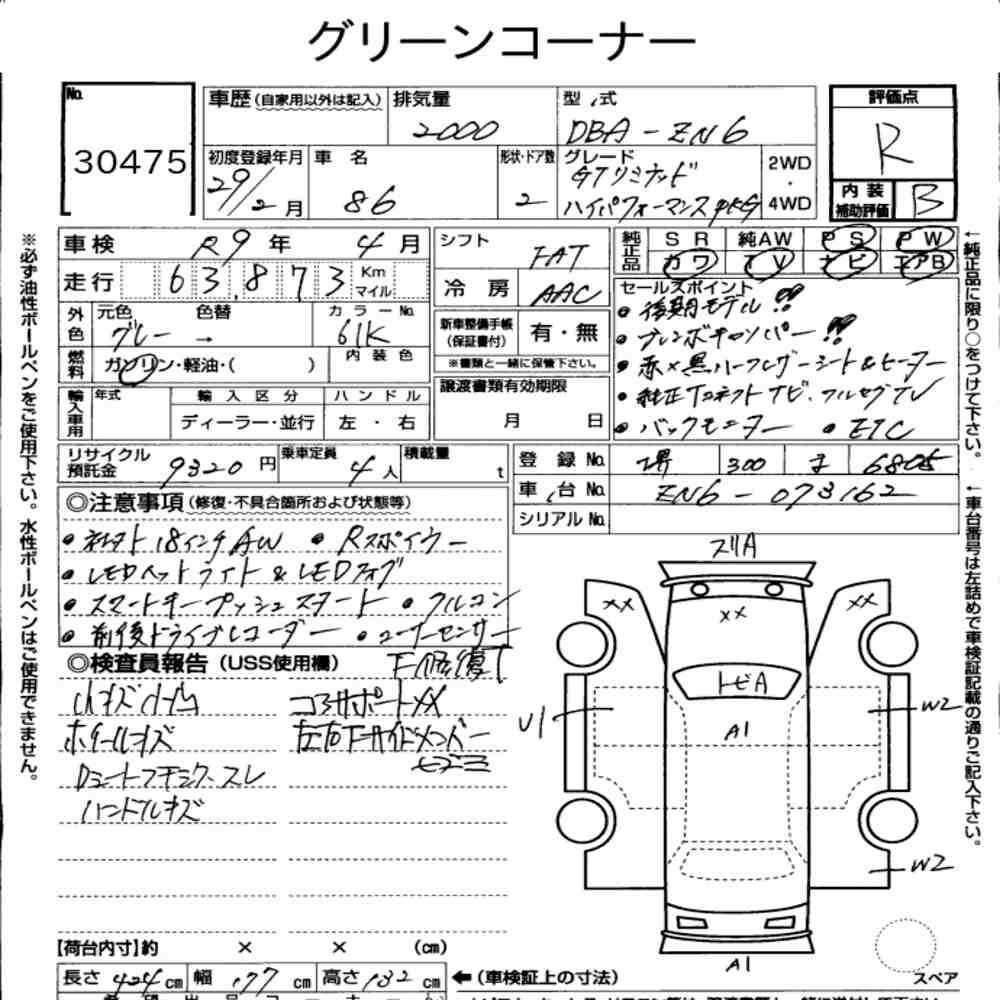 グリーンコーナー
No. 30475
車歴 (自家用以外は記入) 排気量 2000 型式 DBA-ZN6
評価点 R
初度登録年月 29/2月 車名 86 形状・ドア数 2 グレード GTリミテッド ハイパフォーマンスPKG 2WD・4WD
内装補助評価 B
車検 R9年 4月 シフト FAT
純正品 SR 純AW PS PW
カワ TV ナビ エアB
走行 63,873 Km マイル 冷房 AAC
外色 元色 グレー → 色替 カラーNo. 61K
新車整備手帳 (保証書付) 有・無
※書類と一緒に保管下さい。
燃料 ガソリン・軽油・( ) 内装色
譲渡書類有効期限 月 日
輸入車用 年式 輸入区分 ハンドル
ディーラー・並行 左・右
セールスポイント
・後期モデル!!
・ブレンボキャリパー!!
・赤×黒ハーフレザーシート&ヒーター
・純正Tコネクトナビ.フルセグTV
・バックモニター ・ETC
リサイクル預託金 9320円 乗車定員 4人 積載量 t
登録No. 堺 300
車台No. ZN6-073162
シリアルNo.
◎注意事項 (修復・不具合箇所および状態等)
18インチAW ・Rスポイラー
・LEDヘッドライト&LEDフォグ
・スマートキープッシュスタート ・フルコン
・前後ドライブレコーダー ・コーナーセンサー
◎検査員報告 (USS使用欄) 下修復了
コアサポートXX
ホイールキズ
左右下サイドメンバー
スレ
ハンドルキズ
スリA
XX
XX
XX
トビA
U1
A1
W2
W2
A1
スペア
【荷台内寸】約 × × (cm)
長さ 424cm 幅 177cm 高さ 132cm ←(車検証上の寸法)
※必ず油性ボールペンをご使用下さい。水性ボールペンはご使用できません。
←純正品に限り○をつけて下さい。
←車台番号は左詰めで車検証記載の通りご記入下さい。